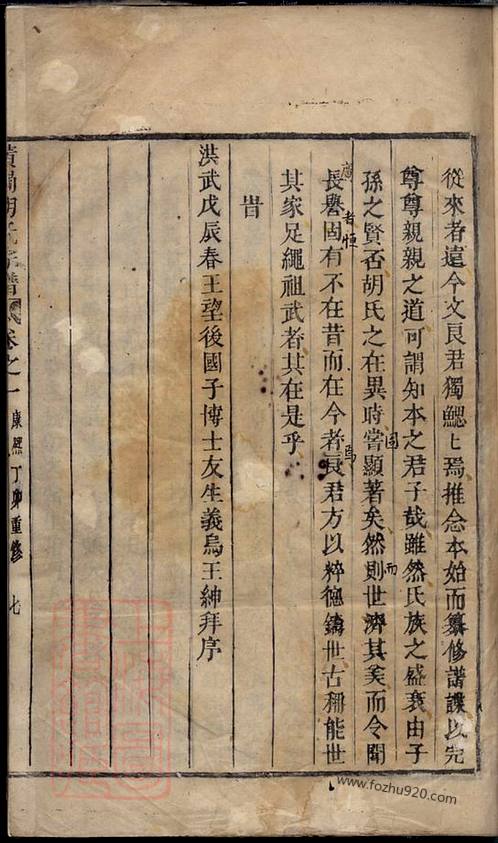 從來者遠今文良君獨鰓鰓焉推念本始而纂修譜諜以完
尊尊親親之道可謂知本之君子哉雖然氏族之盛衰由子
孫之賢否胡氏之在異時嘗顯著矣然則世濟其美而令聞
長譽固有不在昔而在今者良君方以粹德鑄世古稱能世
其家足繩祖武者其在是乎
旹
洪武戊辰春王望後國子博士友生義烏王紳拜序
胡氏宗譜 卷之一 康熙丁卯重修 七
www.fozhu920.com